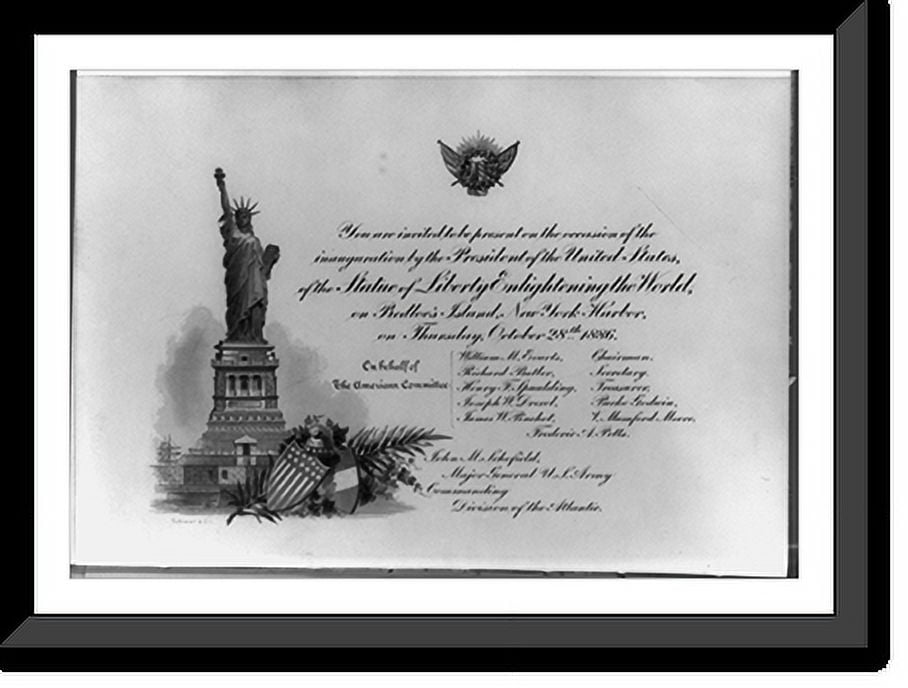 You are invited to be present on the occasion of the
inauguration by the President of the United States,
of the Statue of Liberty Enlightening the World,
on Bedloe's Island, New York Harbor,
on Thursday, October 28th 1886.
On behalf of
The American Committee
William M. Evarts, Chairman.
Richard Butler, Secretary.
Henry F. Spaulding, Treasurer,
Joseph W. Drexel, Parke Godwin,
James W. Pinchot, V. Mumford Moore,
Frederic A. Potts.
John M. Schofield,
Major General U.S. Army
Commanding
Division of the Atlantic.